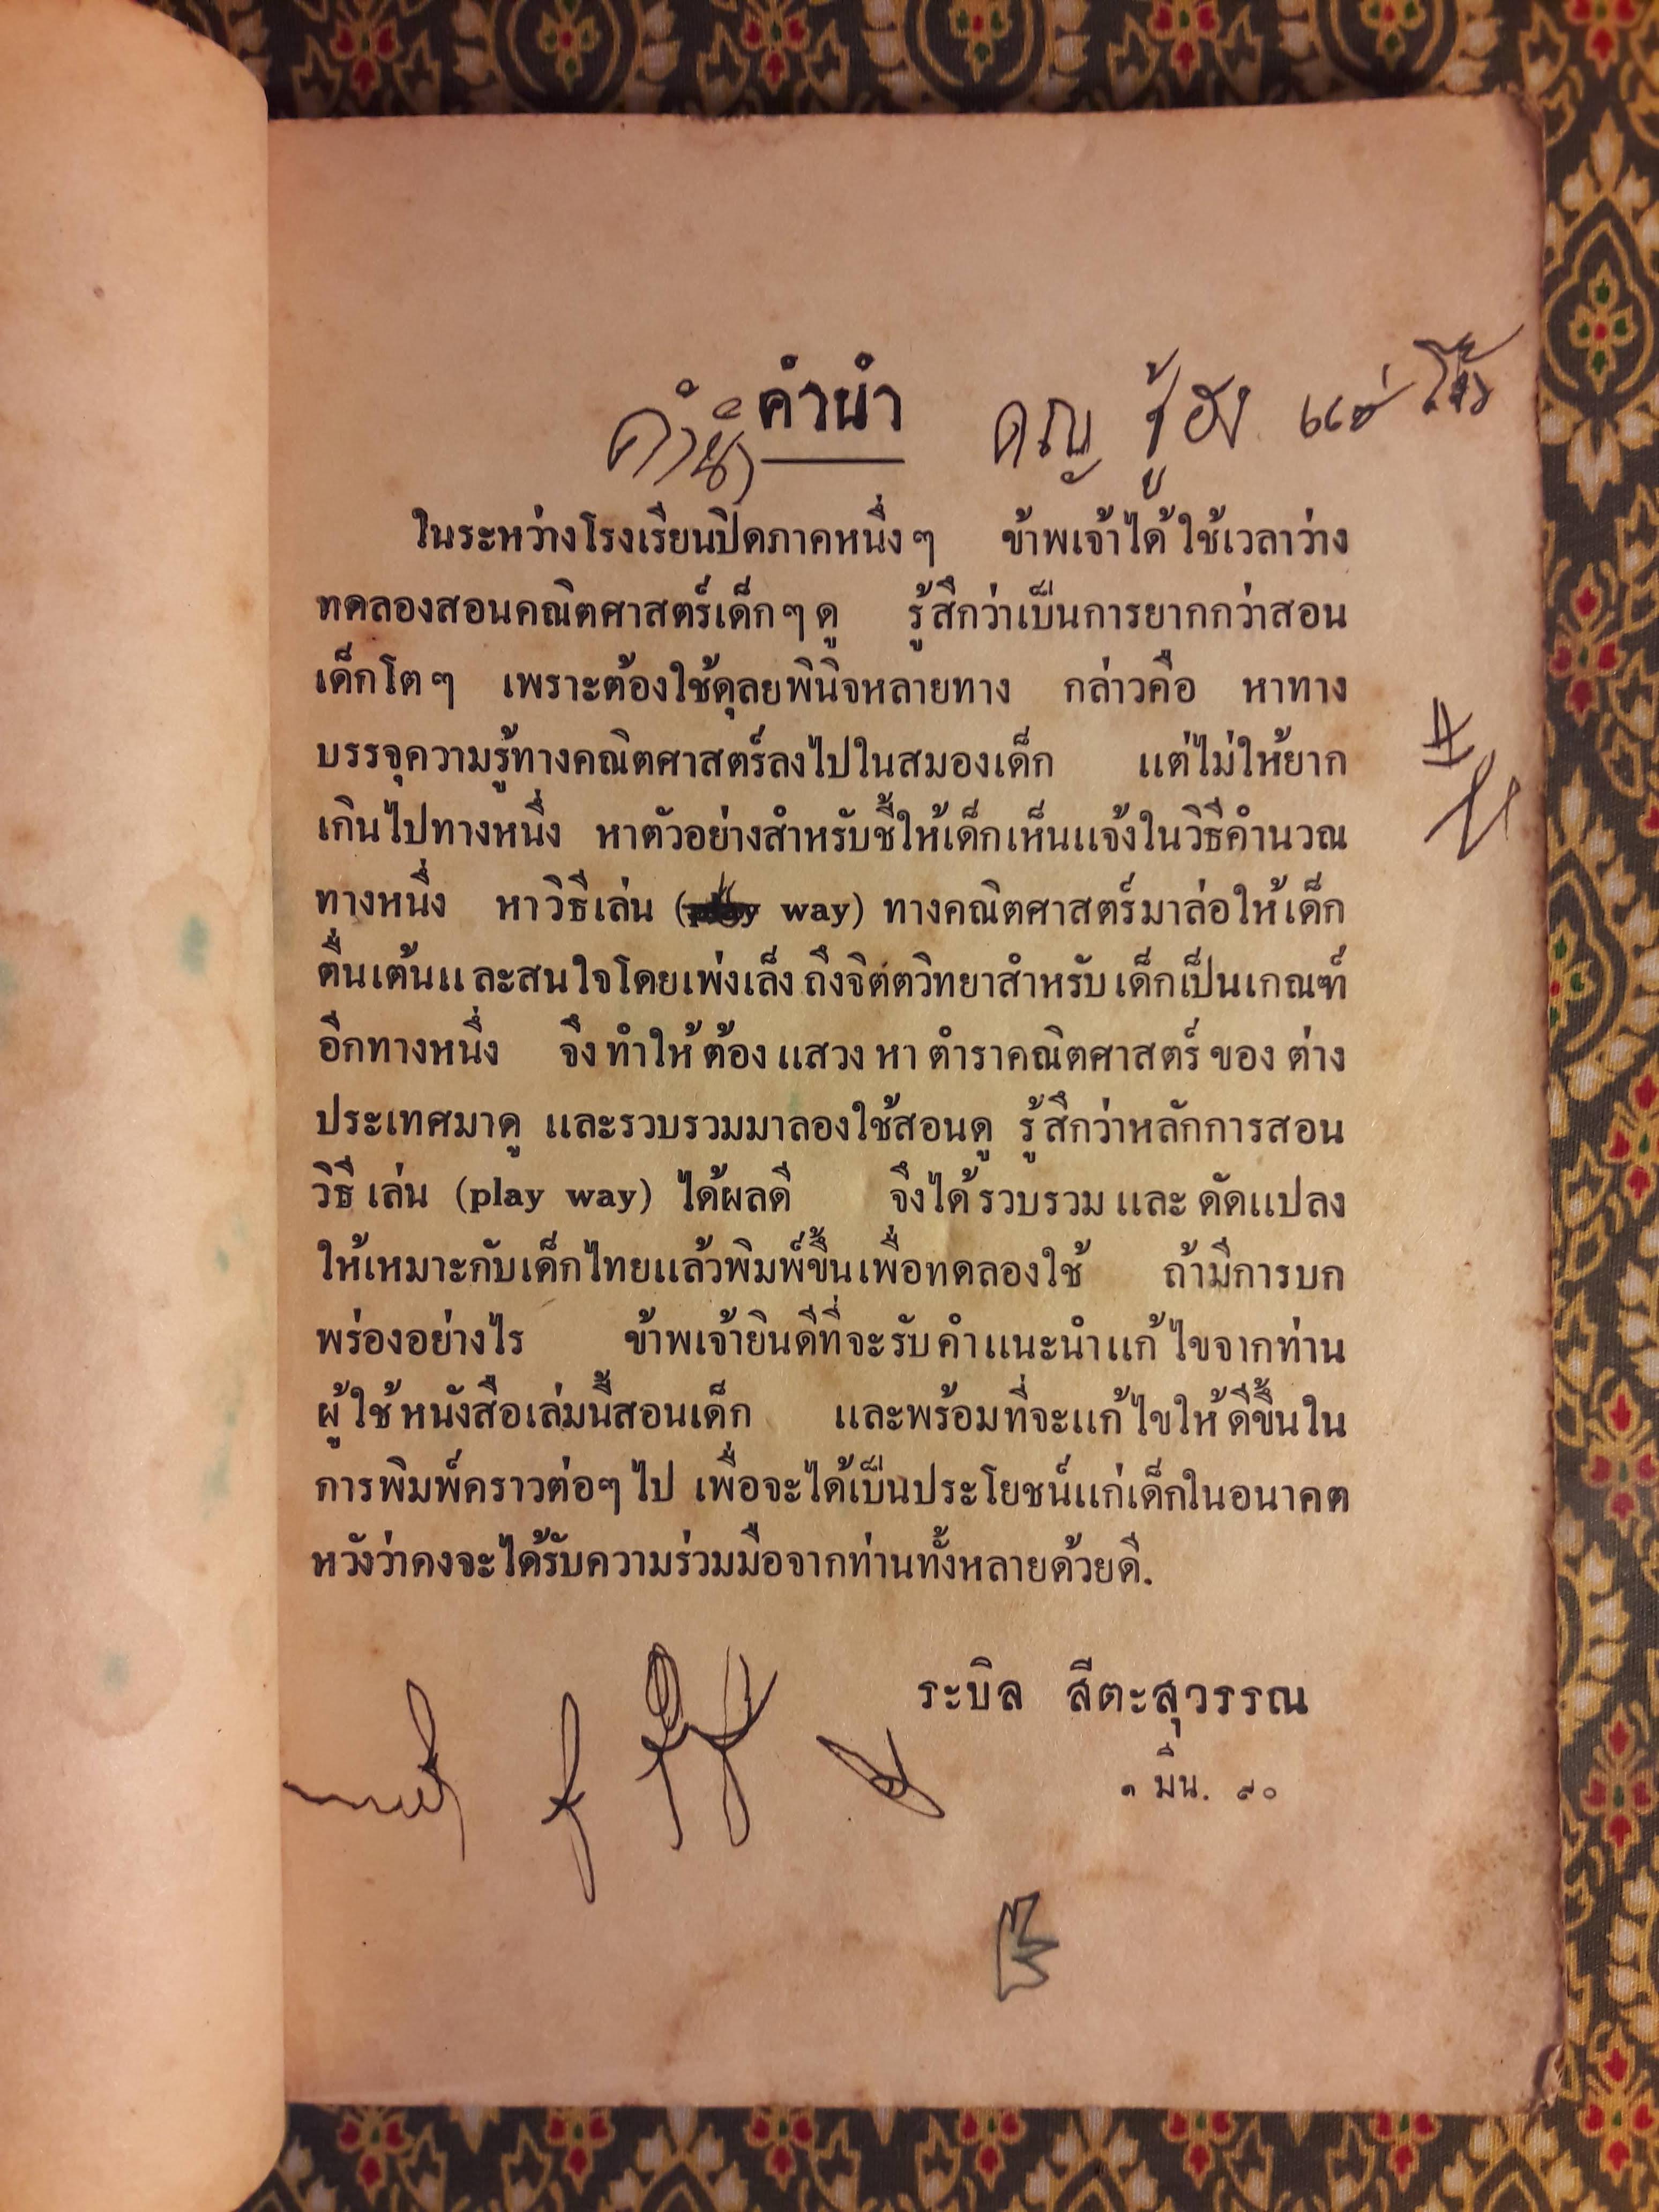 คำนำ
คำนำ
ในระหว่างโรงเรียนปิดภาคหนึ่งๆ ข้าพเจ้าได้ใช้เวลาว่าง
ทดลองสอนคณิตศาสตร์เด็กๆดู รู้สึกว่าเป็นการยากกว่าสอน
เด็กโตๆ เพราะต้องใช้ดุลยพินิจหลายทาง กล่าวคือ หาทาง
บรรจุความรู้ทางคณิตศาสตร์ลงไปในสมองเด็ก แต่ไม่ให้ยาก
เกินไปทางหนึ่ง หาตัวอย่างสำหรับชี้ให้เด็กเห็นแจ้งในวิธีคำนวณ
ทางหนึ่ง หาวิธีเล่น (play way) ทางคณิตศาสตร์มาล่อให้เด็ก
ตื่นเต้นและสนใจโดยเพ่งเล็งถึงจิตตวิทยาสำหรับเด็กเป็นเกณฑ์
อีกทางหนึ่ง จึงทำให้ต้องแสวงหาตำราคณิตศาสตร์ของต่าง
ประเทศมาดู และรวบรวมมาลองใช้สอนดู รู้สึกว่าหลักการสอน
วิธีเล่น (play way) ได้ผลดี จึงได้รวบรวมและดัดแปลง
ให้เหมาะกับเด็กไทยแล้วพิมพ์ขึ้นเพื่อทดลองใช้ ถ้ามีการบก
พร่องอย่างไร ข้าพเจ้ายินดีที่จะรับคำแนะนำแก้ไขจากท่าน
ผู้ใช้หนังสือเล่มนี้สอนเด็ก และพร้อมที่จะแก้ไขให้ดีขึ้นใน
การพิมพ์คราวต่อๆไป เพื่อจะได้เป็นประโยชน์แก่เด็กในอนาคต
หวังว่าคงจะได้รับความร่วมมือจากท่านทั้งหลายด้วยดี.
ระบิล สีตะสุวรรณ
๑ มีน. ๙๐